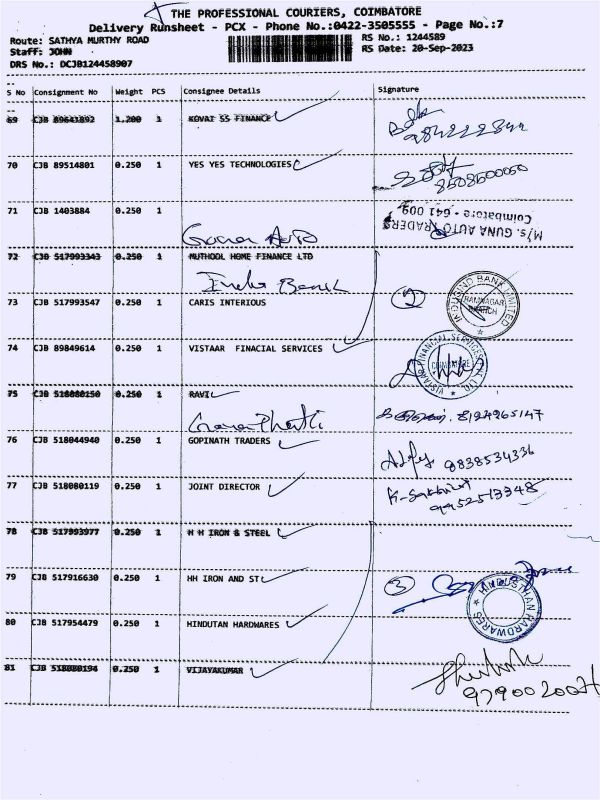 THE PROFESSIONAL COURIERS, COIMBATORE
Delivery Runsheet - PCX - Phone No.:0422-3505555 - Page No.:7
Route: SATHYA MURTHY ROAD RS No.: 1244589
Staff: JOHN RS Date: 20-Sep-2023
DRS No.: DCJB124458907
S No Consignment No Weight PCS Consignee Details Signature
69 CJB 89641892 1.200 1 KOVAI SS FINANCE
70 CJB 89514801 0.250 1 YES YES TECHNOLOGIES
8508500050
71 CJB 1403884 0.250 1
M/s. GUNA AUTO TRADERS
Coimbatore - 641 009
Guna Auto
72 CJB 517993343 0.250 1 MUTHOOL HOME FINANCE LTD
Bank
73 CJB 517993547 0.250 1 CARIS INTERIOUS
2
INDUSIND BANK LIMITED
RAMNAGAR
BRANCH
74 CJB 89849614 0.250 1 VISTAAR FINACIAL SERVICES
VISTAAR FINANCIAL SERVICES PVT. LTD.
COIMBATORE
75 CJB 518080150 0.250 1 RAVI
8124965147
76 CJB 518044940 0.250 1 GOPINATH TRADERS
9838534336
77 CJB 518080119 0.250 1 JOINT DIRECTOR
9952513348
78 CJB 517993977 0.250 1 H H IRON & STEEL
79 CJB 517916630 0.250 1 HH IRON AND ST
3
HINDUSTHAN HARDWARES
80 CJB 517954479 0.250 1 HINDUTAN HARDWARES
81 CJB 518080194 0.250 1 VIJAYAKUMAR